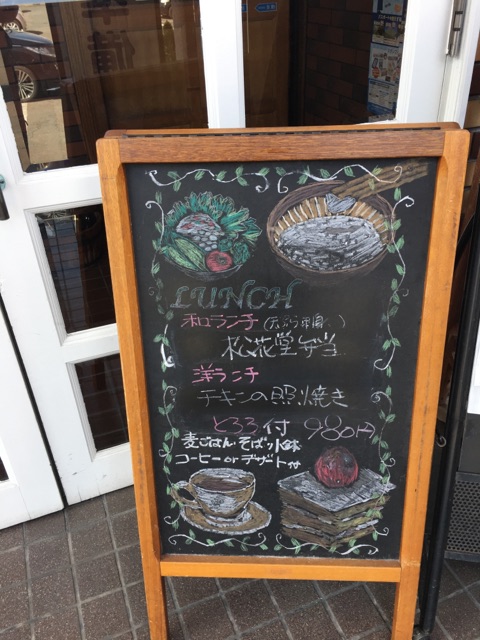 LUNCH
和ランチ
松花堂弁当
洋ランチ
チキンの照焼き
とろろ付 980円
麦ごはん・そば・小鉢
コーヒー or デザート付